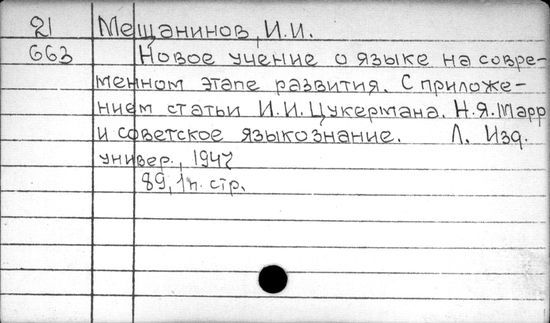 21 Мещанинов, И.И.
663 Новое учение о языке на совре-
менном этапе развития. С приложе-
нием статьи И.И. Цукермана. Н.Я. Марр
и советское языкознание. Л. Изд.
универ., 1947
89, 1 п. стр.